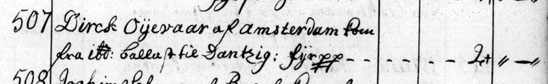 507 Dirck Oÿevaar af Amsterdam kom
fra itd: ballast til Dantzig: fÿr - - - - - - 2 " — " —
508